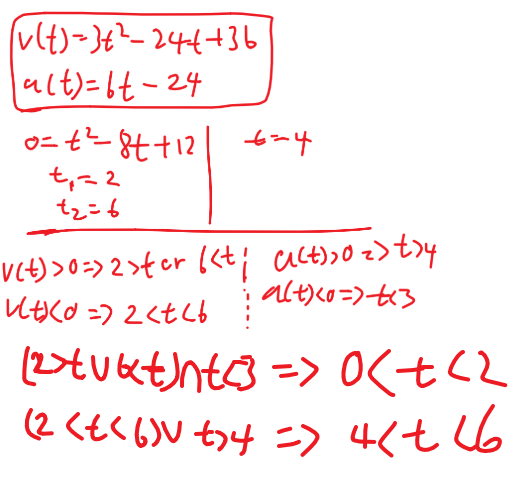 v(t)=3t²-24t+36
a(t)=6t-24
0=t²-8t+12
t=4
t₁=2
t₂=6
v(t)>0=>2>t or 6<t
a(t)>0=>t>4
v(t)<0=>2<t<6
a(t)<0=>t<3
(2>t∪6<t)∩t<3=>0<t<2
(2<t<6)∪t>4=>4<t<6